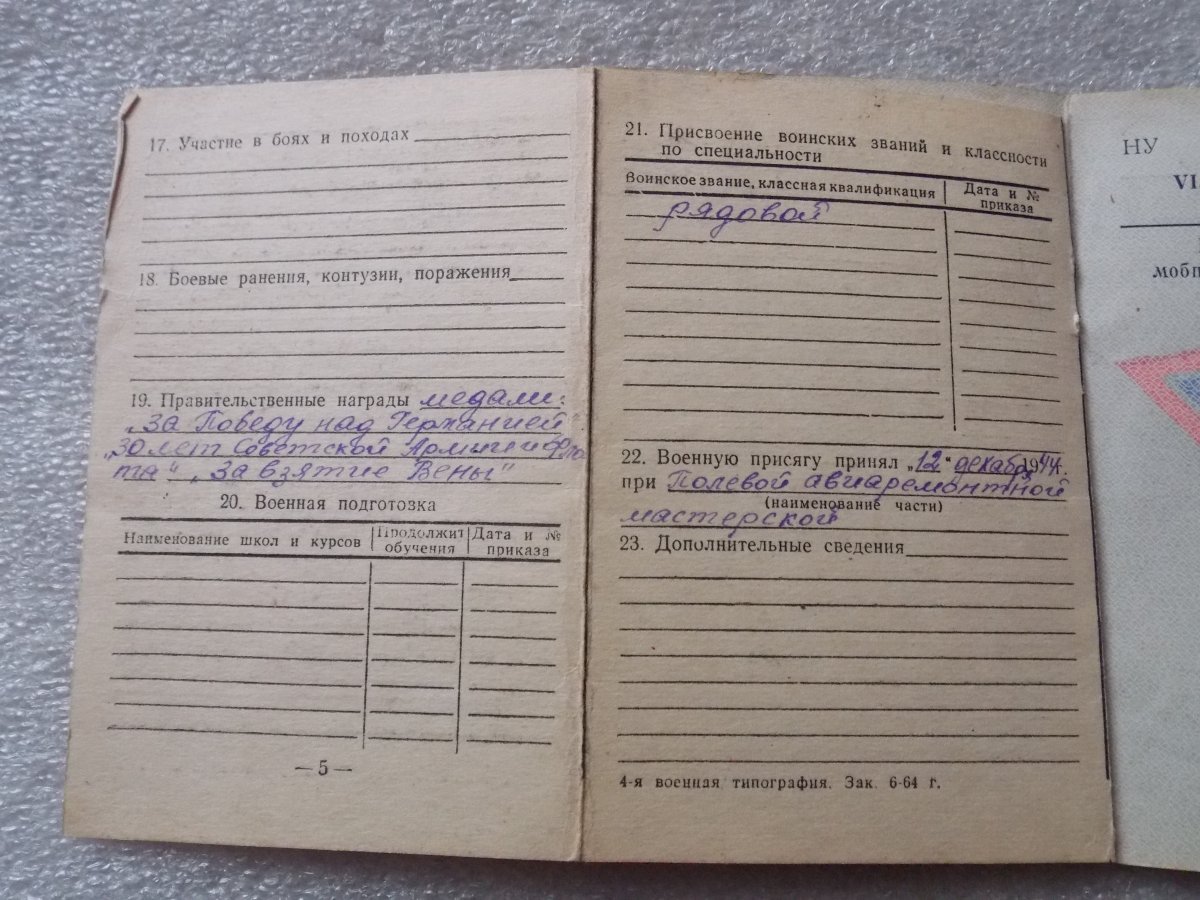 17. Участие в боях и походах
18. Боевые ранения, контузии, поражения
19. Правительственные награды медали:
„За Победу над Германией"
„30 лет Советской Армии и Фло
та" „За взятие Вены"
20. Военная подготовка
Наименование школ и курсов
Продолжит
обучения
Дата и №
приказа
—5—
21. Присвоение воинских званий и классности
по специальности
Воинское звание, классная квалификация
Дата и №
приказа
рядовой
22. Военную присягу принял „12" декабр 1944г.
при Полевой авиаремонтной
(наименование части)
мастерской
23. Дополнительные сведения
4-я военная типография. Зак. 6-64 г.
НУ
VI
моби